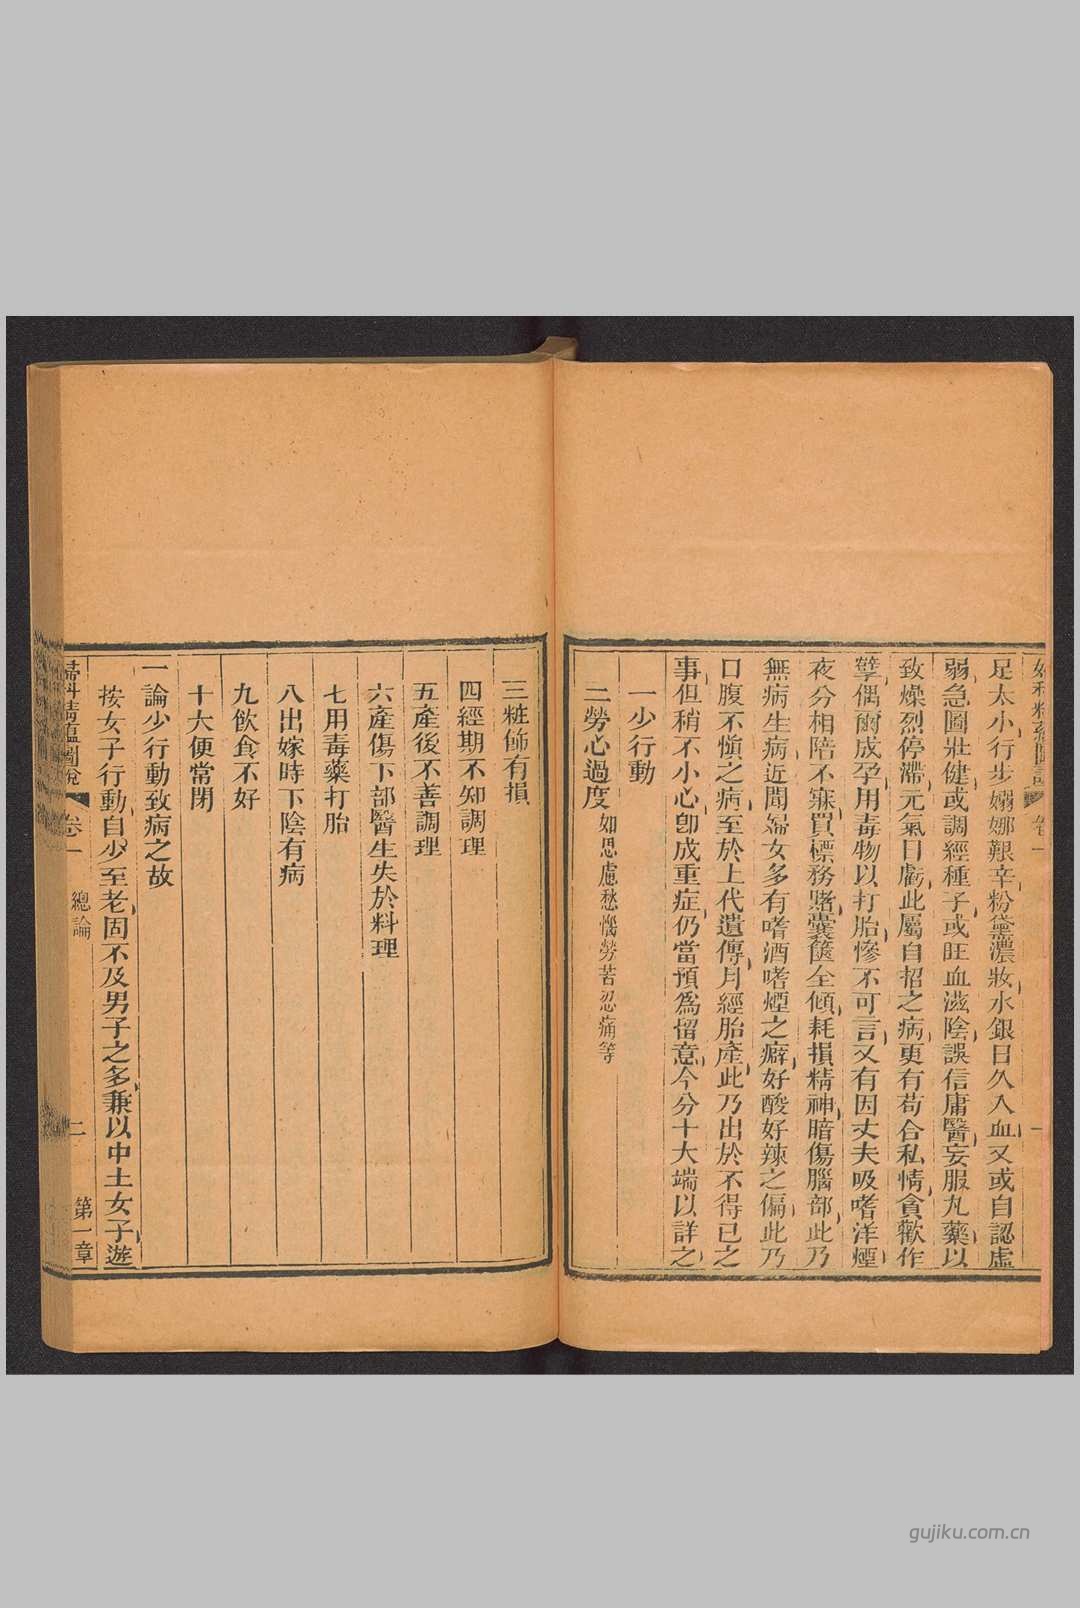 足太小行步嫋娜艱辛粉黛濃妝水銀日久入血又或自認虛
弱急圖壯健或調經種子或旺血滋陰誤信庸醫妄服丸藥以
致燥烈停滯元氣日虧此屬自招之病更有苟合私情貪歡作
孽偶爾成孕用毒物以打胎慘不可言又有因丈夫吸嗜洋煙
夜分相陪不寐買標務賭囊篋全傾耗損精神暗傷腦部此乃
無病生病近聞婦女多有嗜酒嗜煙之癖好酸好辣之偏此乃
口腹不慎之病至於上代遺傳月經胎產此乃出於不得已之
事但稍不小心卽成重症仍當預爲留意今分十大端以詳之
一少行動
二勞心過度如思慮愁惱勞苦忍痛等
三粧飾有損
四經期不知調理
五產後不善調理
六產傷下部醫生失於料理
七用毒藥打胎
八出嫁時下陰有病
九飲食不好
十大便常閉
一論少行動致病之故
按女子行動自少至老固不及男子之多兼以中土女子遊
婦科精蘊圖說 卷一 總論 二 第一章
gujiku.com.cn